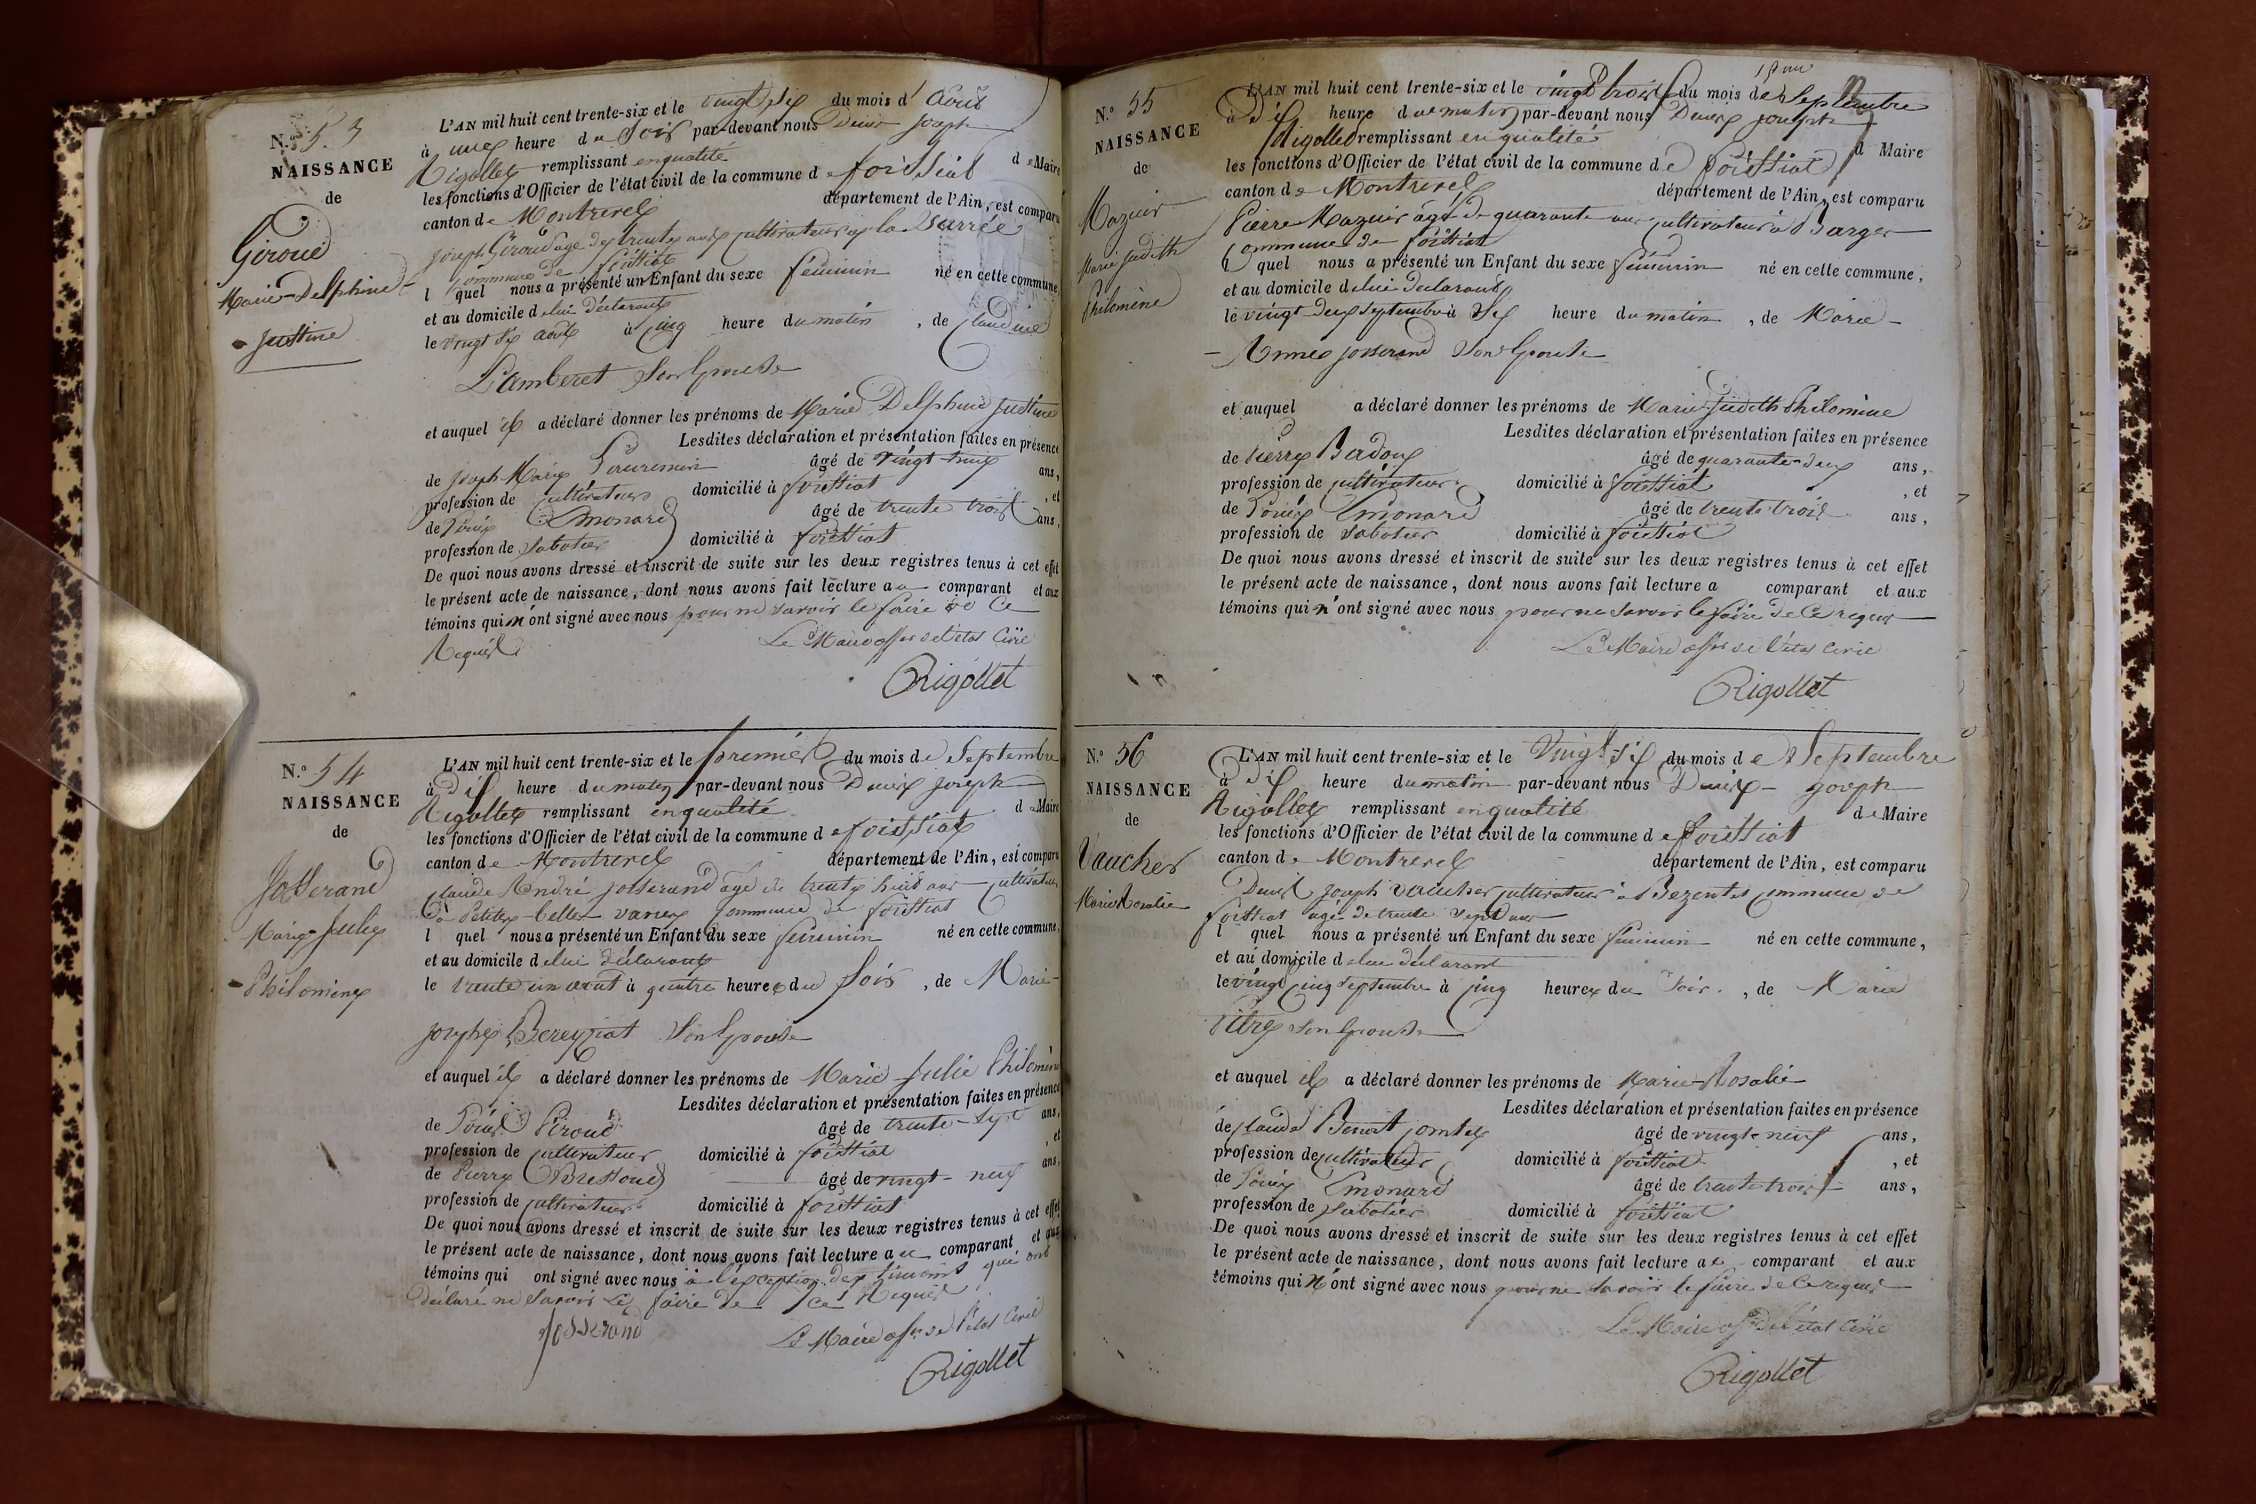 N.º 53
NAISSANCE
de
Giroud
Marie-Delphine
Justine
L'AN mil huit cent trente-six et le vingt six du mois d'Août
à une heure du Soir par-devant nous Denis Joseph
Rigollet remplissant en qualité de Maire
les fonctions d'Officier de l'état civil de la commune de foissiat
canton de Montrevel département de l'Ain, est comparu
Joseph Giroud agé de trente ans cultivateur à la Serrée
Commune de foissiat
lequel nous a présenté un Enfant du sexe féminin né en cette commune,
et au domicile de lui déclarant
le vingt six août à cinq heure du matin, de Claudine
Lamberet Son Epouse
et auquel il a déclaré donner les prénoms de Marie Delphine Justine
Lesdites déclaration et présentation faites en présence
de Joseph Marie âgé de vingt ans,
profession de Cultivateur domicilié à foissiat, et
de Denis Emonard âgé de trente trois ans,
profession de Sabotier domicilié à foissiat
De quoi nous avons dressé et inscrit de suite sur les deux registres tenus à cet effet
le présent acte de naissance, dont nous avons fait lecture au comparant et aux
témoins qui n'ont signé avec nous pour ne savoir le faire de Ce
Requis
Le Maire offer de l'état Civil
Rigollet
N.º 54
NAISSANCE
de
Josserand
Marie Julie
Philomene
L'AN mil huit cent trente-six et le premier du mois de Septembre
à dix heure du matin par-devant nous Denis Joseph
Rigollet remplissant en qualité de Maire
les fonctions d'Officier de l'état civil de la commune de foissiat
canton de Montrevel département de l'Ain, est comparu
Claude André Josserand agé de trente huit ans cultivateur
à Petites-belles vavres Commune de foissiat
lequel nous a présenté un Enfant du sexe féminin né en cette commune,
et au domicile de lui déclarant
le trente un août à quatre heures du Soir, de Marie
Josephe Bereyziat Son Epouse
et auquel il a déclaré donner les prénoms de Marie Julie Philomène
Lesdites déclaration et présentation faites en présence
de Denis Péroud âgé de trente-sept ans,
profession de cultivateur domicilié à foissiat, et
de Pierre Bressoud âgé de vingt-neuf ans,
profession de cultivateur domicilié à foissiat
De quoi nous avons dressé et inscrit de suite sur les deux registres tenus à cet effet
le présent acte de naissance, dont nous avons fait lecture au comparant et aux
témoins qui ont signé avec nous à l'exception des témoins qui ont
déclaré ne savoir le faire de ce Requis
Josserand
Le Maire ofer de l'état Civil
Rigollet
N.º 55
NAISSANCE
de
Mazuir
Marie Judith
Philomène
L'AN mil huit cent trente-six et le vingt trois du mois de Septembre
à dix heure du matin par-devant nous Denis Joseph
Rigollet remplissant en qualité de
d Maire
les fonctions d'Officier de l'état civil de la commune de foissiat
canton de Montrevel département de l'Ain, est comparu
Pierre Mazuir âgé de quarante ans cultivateur à Barge
Commune de foissiat
lequel nous a présenté un Enfant du sexe féminin né en cette commune,
et au domicile de lui déclarant
le vingt-deux septembre à six heure du matin, de Marie
Anne Josserand Son Epouse
et auquel a déclaré donner les prénoms de Marie Judith Philomène
Lesdites déclaration et présentation faites en présence
de Pierre Badoux âgé de quarante-deux ans,
profession de cultivateur domicilié à foissiat, et
de Denis Emonard âgé de trente trois ans,
profession de Sabotier domicilié à foissiat
De quoi nous avons dressé et inscrit de suite sur les deux registres tenus à cet effet
le présent acte de naissance, dont nous avons fait lecture a comparant et aux
témoins qui n'ont signé avec nous pour ne savoir le faire de Ce requis
Le Maire ofer de l'état Civil
Rigollet
N.º 56
NAISSANCE
de
Vaucher
Marie Rosalie
L'AN mil huit cent trente-six et le Vingt-six du mois de Septembre
à dix heure du matin par-devant nous Denis Joseph
Rigollet remplissant en qualité de Maire
les fonctions d'Officier de l'état civil de la commune de foissiat
canton de Montrevel département de l'Ain, est comparu
Denis Joseph Vaucher cultivateur à Bezentet Commune de
foissiat agé de trente sept ans
lequel nous a présenté un Enfant du sexe féminin né en cette commune,
et au domicile de lui déclarant
le vingt cinq Septembre à cinq heures du Soir, de Marie
Pitre Son Epouse
et auquel il a déclaré donner les prénoms de Marie Rosalie
Lesdites déclaration et présentation faites en présence
de Claude Benoit Comtet âgé de vingt-neuf ans,
profession de cultivateur domicilié à foissiat, et
de Denis Emonard âgé de trente-trois ans,
profession de Sabotier domicilié à foissiat
De quoi nous avons dressé et inscrit de suite sur les deux registres tenus à cet effet
le présent acte de naissance, dont nous avons fait lecture au comparant et aux
témoins qui n'ont signé avec nous pour ne savoir le faire de Ce requis
Le Maire ofer de l'état Civil
Rigollet